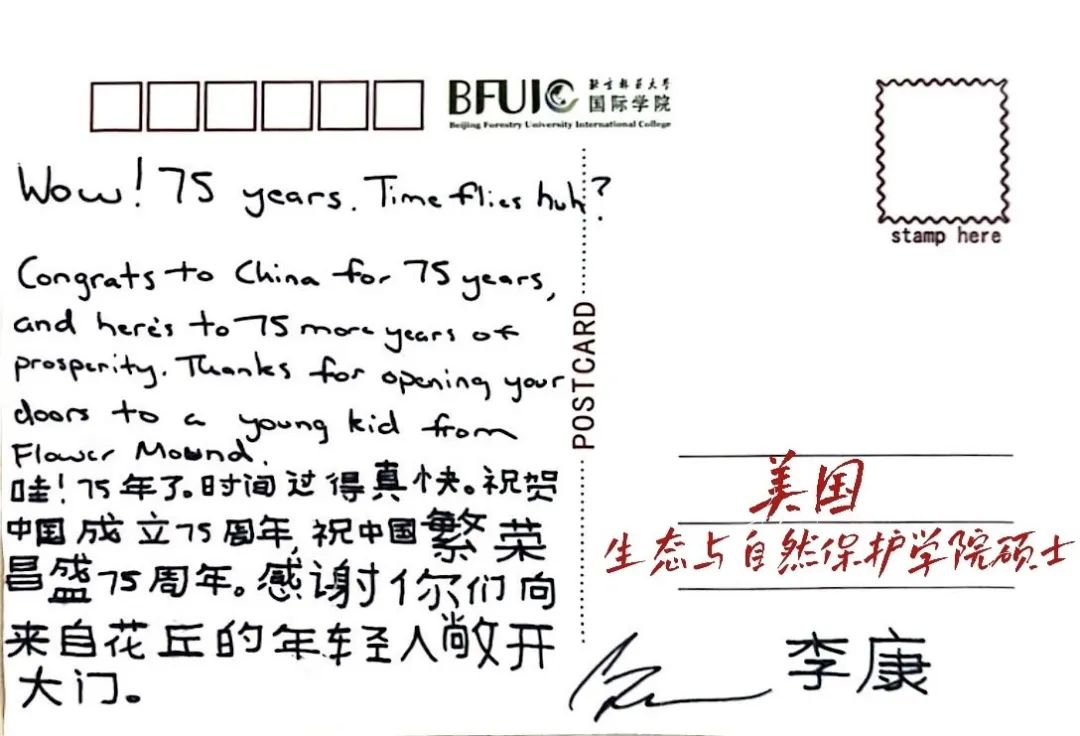 BFUIC
北京林业大学
国际学院
Beijing Forestry University International College
stamp here
Wow! 75 years. Time flies huh?
Congrats to China for 75 years,
and here's to 75 more years of
prosperity. Thanks for opening your
doors to a young kid from
Flower Mound.
哇!75年了。时间过得真快。祝贺
中国成立75周年,祝中国繁荣
昌盛75周年。感谢你们向
来自花丘的年轻人敞开
大门。
POSTCARD
美国
生态与自然保护学院硕士
李康